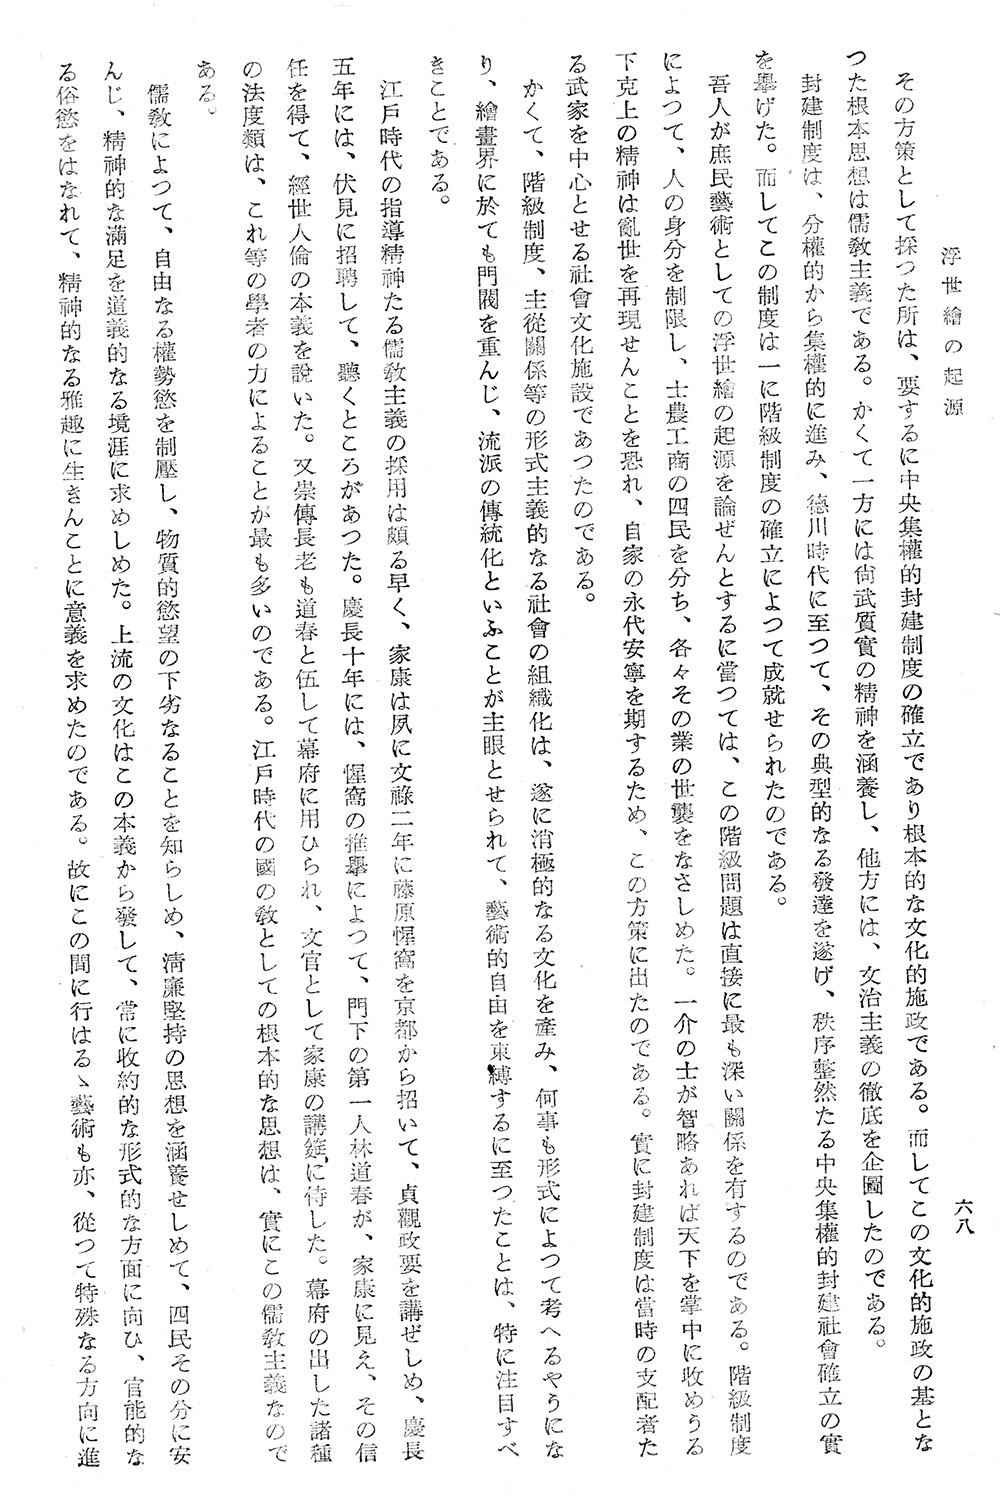 浮世繪の起源
六八
その方策として採つた所は、要するに中央集權的封建制度の確立であり根本的な文化的施政である。而してこの文化的施政の基とな
つた根本思想は儒教主義である。かくて一方には尙武質實の精神を涵養し、他方には、文治主義の徹底を企圖したのである。
封建制度は、分權的から集權的に進み、德川時代に至つて、その典型的なる發達を遂げ、秩序整然たる中央集權的封建社會確立の實
を擧げた。而してこの制度は一に階級制度の確立によつて成就せられたのである。
吾人が庶民藝術としての浮世繪の起源を論ぜんとするに當つては、この階級問題は直接に最も深い關係を有するのである。階級制度
によつて、人の身分を制限し、士農工商の四民を分ち、各々その業の世襲をなさしめた。一介の士が智略あれば天下を掌中に收めうる
下克上の精神は亂世を再現せんことを恐れ、自家の永代安寧を期するため、この方策に出たのである。實に封建制度は當時の支配者た
る武家を中心とせる社會文化施設であつたのである。
かくて、階級制度、主從關係等の形式主義的なる社會の組織化は、遂に消極的なる文化を產み、何事も形式によつて考へるやうにな
り、繪畫界に於ても門閥を重んじ、流派の傳統化といふことが主眼とせられて、藝術的自由を束縛するに至つたことは、特に注目すべ
きことである。
江戶時代の指導精神たる儒教主義の採用は頗る早く、家康は夙に文祿二年に藤原惺窩を京都から招いて、貞觀政要を講ぜしめ、慶長
五年には、伏見に招聘して、聽くところがあつた。慶長十年には、惺窩の推擧によつて、門下の第一人林道春が、家康に見え、その信
任を得て、經世人倫の本義を說いた。又崇傳長老も道春と伍して幕府に用ひられ、文官として家康の講筵に侍した。幕府の出した諸種
の法度類は、これ等の學者の力によることが最も多いのである。江戶時代の國の教としての根本的な思想は、實にこの儒教主義なので
ある。
儒教によつて、自由なる權勢慾を制壓し、物質的慾望の下劣なることを知らしめ、淸廉堅持の思想を涵養せしめて、四民その分に安
んじ、精神的な滿足を道義的なる境涯に求めしめた。上流の文化はこの本義から發して、常に收約的な形式的な方面に向ひ、官能的な
る俗慾をはなれて、精神的なる雅趣に生きんことに意義を求めたのである。故にこの間に行はるゝ藝術も亦、從つて特殊なる方向に進